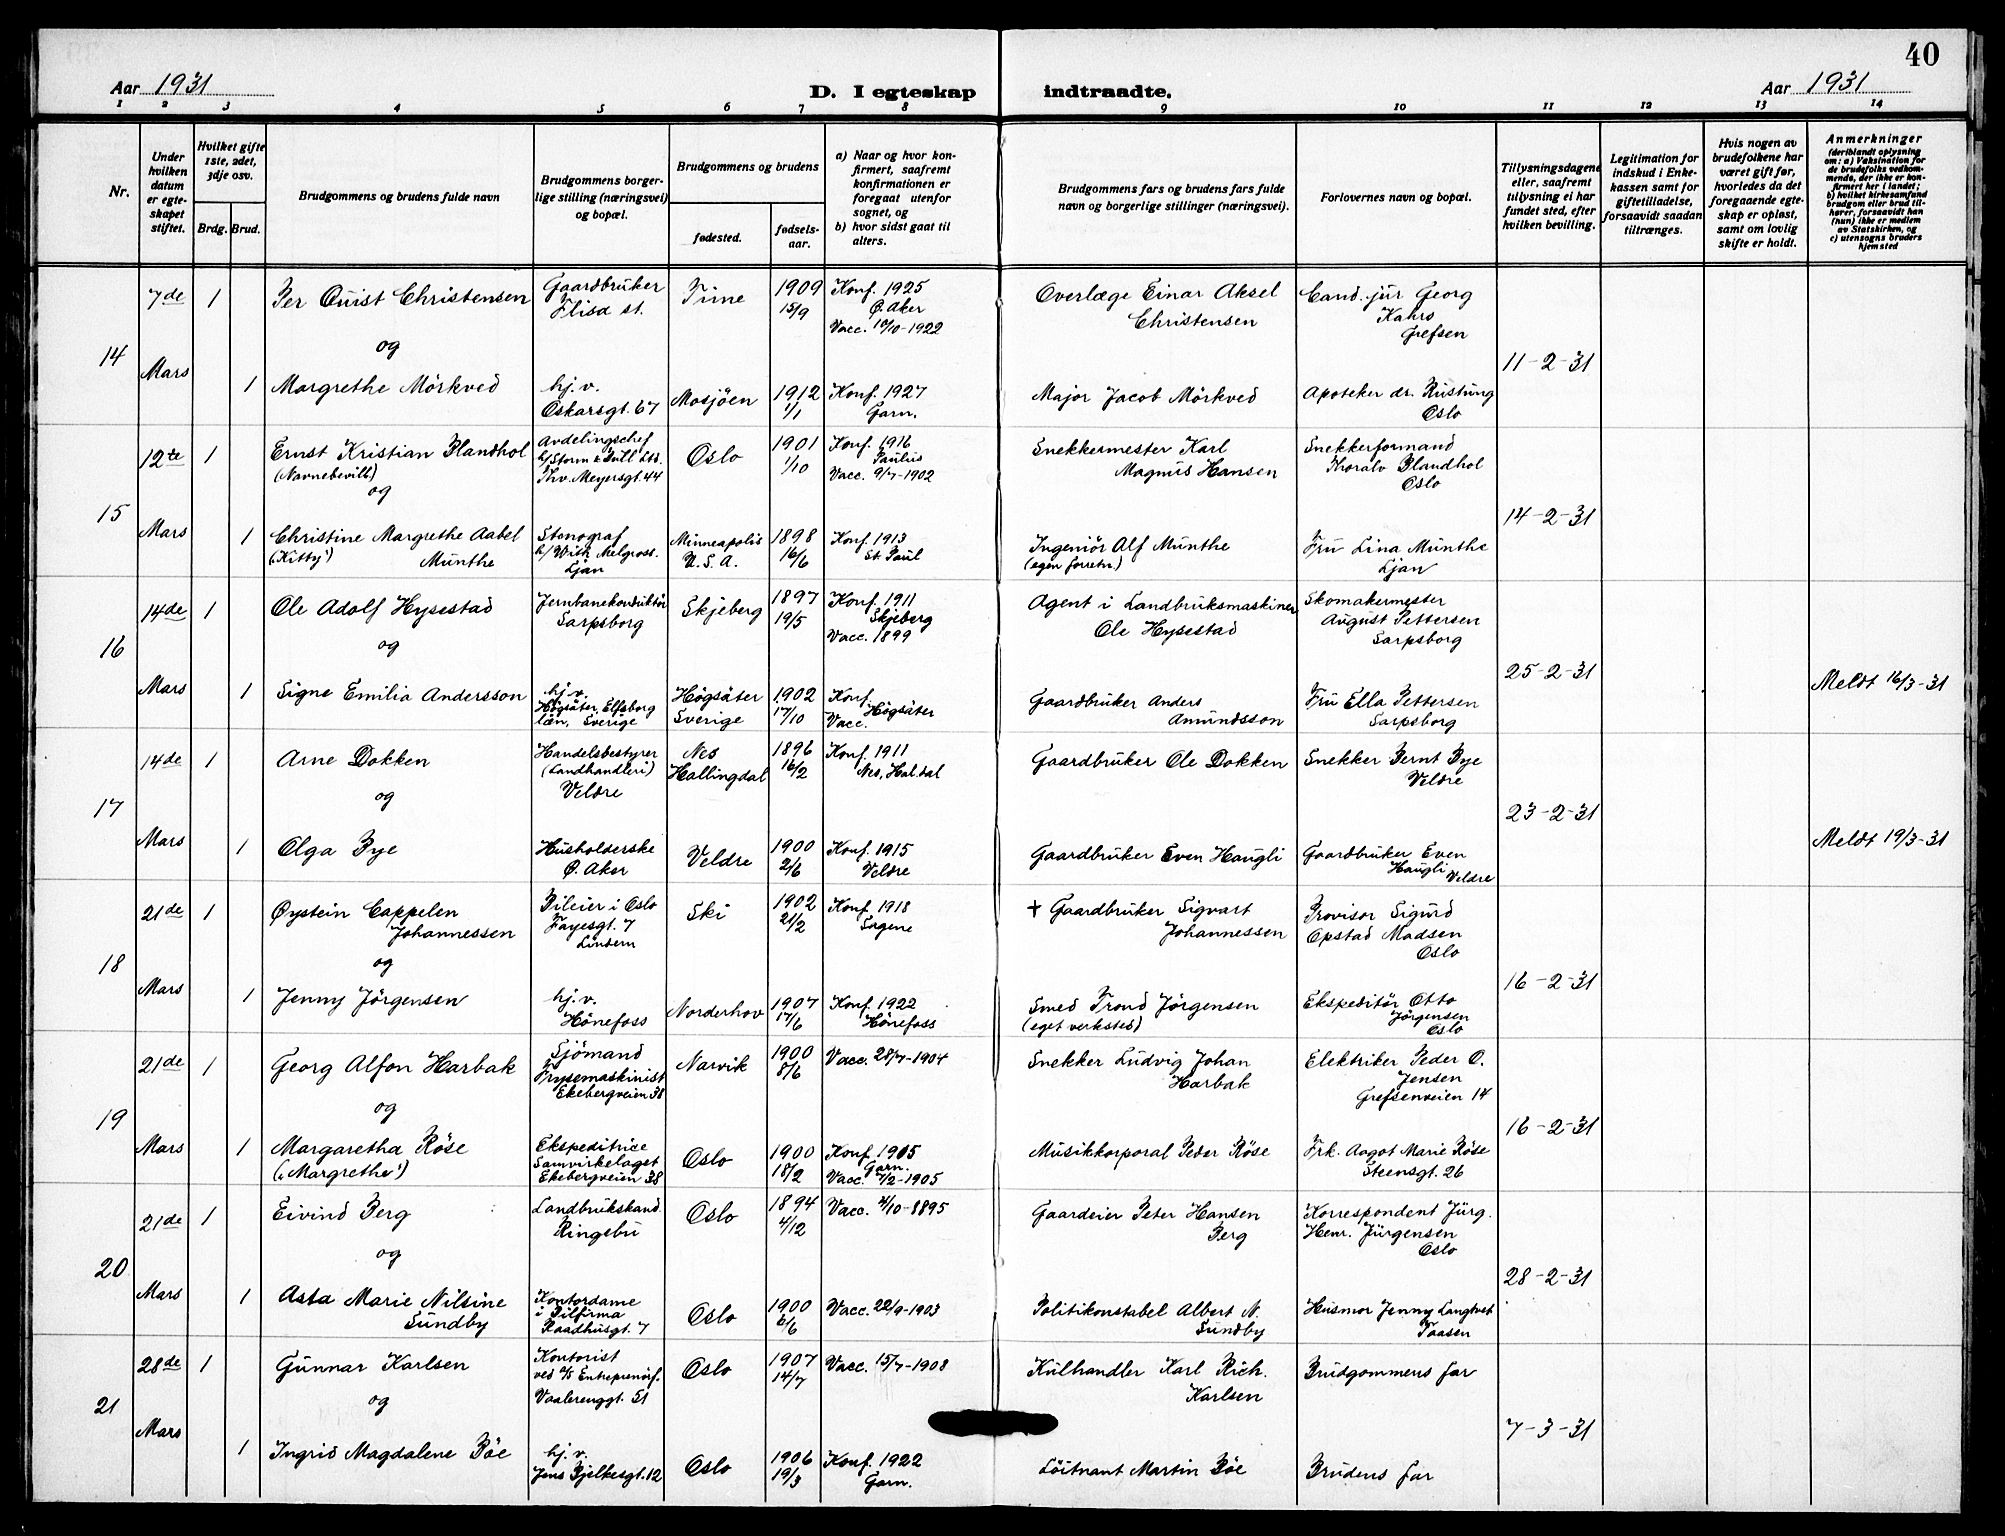 40
Aar 1931 D. I egteskap indtraadte. Aar 1931
1 2 3 4 5 6 7 8 9 10 11 12 13 14
Nr.
Under hvilken datum er egteskapet stiftet.
Hvilket gifte 1ste, 2det, 3dje osv.
Brdg. Brud.
Brudgommens og brudens fulde navn
Brudgommens borgerlige stilling (næringsvei) og bopæl.
Brudgommens og brudens
fødested.
fødselsaar.
a) Naar og hvor konfirmert, saafremt konfirmationen er foregaat utenfor sognet, og
b) hvor sidst gaat til alters.
Brudgommens fars og brudens fars fulde navn og borgerlige stillinger (næringsvei).
Forlovernes navn og bopæl.
Tillysningsdagene eller, saafremt tillysning ei har fundet sted, efter hvilken bevilling.
Legitimation for indskud i Enkekassen samt for giftetilladelse, forsaavidt saadan tiltrænges.
Hvis nogen av brudefolkene har været gift før, hvorledes da det foregaaende egteskap er opløst, samt om lovlig skifte er holdt.
Anmerkninger
(deriblandt oplysning om: a) Vaksination for de brudefolks vedkommende, der ikke er konfirmert her i landet; b) hvilket kirkesamfund brudgom eller brud tilhører, forsaavidt han (hun) ikke er medlem av Statskirken, og c) utensogns bruders hjemsted
14
7de Mars
1 Per Quist Christensen
Gaardbruker
Flisa st.
Time
1909
15/9
Konf. 1925
Ø. Aker
Vacc. 10/10-1922
Overlæge Einar Aksel
Christensen
Cand. jur Georg
Kahrs
Grefsen
og
11-2-31
1 Margrethe Mörkved
hj. v.
Oskarsgt. 67
Mosjöen
1912
1/1
Konf. 1927
Garn.
Major Jacob Mörkved
Apoteker dr. Rustung
Oslo
15
12te Mars
1 Ernst Kristian Blandhol
(Navnebevilb)
Avdelingschef
b/Storm & Bull Ltd.
Thv. Meyersgt. 44
Oslo
1901
1/10
Konf. 1916
Paulus
Vacc. 9/7-1902
Snekkermester Karl
Magnus Hansen
Snekkerformand
Thoralv Blandhol
Oslo
og
14-2-31
1 Christine Margrethe Aabel
("Kitty") Munthe
Stenograf
b/Wish Melgross.
Ljan
Minneapolis
U. S. A.
1898
16/6
Konf. 1913
St. Paul
Ingeniör Alf Munthe
(egen forretn.)
Fru Lina Munthe
Ljan
16
14de Mars
1 Ole Adolf Hysestad
Jernbanekonduktör
Sarpsborg
Skjeberg
1897
19/5
Konf. 1911
Skjeberg
Vacc. 1899
Agent i Landbruksmaskiner
Ole Hysestad
Skomakermester
August Pettersen
Sarpsborg
og
25-2-31
1 Signe Emilia Andersson
hj. v.
Högsäter, Elfsborg
län, Sverige
Högsäter
Sverige
1902
17/10
Konf.
Vacc. Högsäter
Gaardbruker Anders
Amundsson
Fru Ella Pettersen
Sarpsborg
Meldt 16/3-31
17
14de Mars
1 Arne Dokken
Handelsbestyrer
(Landhandleri)
Veldre
Nes
Hallingdal
1896
16/2
Konf. 1911
Nes, Hal.dal
Gaardbruker Ole Dokken
Snekker Bernt Bye
Veldre
og
23-2-31
1 Olga Bye
Husholderske
Ø. Aker
Veldre
1900
2/6
Konf. 1915
Veldre
Gaardbruker Even Haugli
Gaardbruker Even
Haugli Veldre
Meldt 19/3-31
18
21de Mars
1 Øystein Cappelen
Johannessen
Bileier i Oslo
Fayesgt. 7
Lindern
Ski
1902
21/2
Konf. 1918
Sagene
† Gaardbruker Sigvart
Johannessen
Provisor Sigurd
Opstad Madsen
Oslo
og
16-2-31
1 Jenny Jörgensen
hj. v.
Hönefoss
Norderhov
1907
17/6
Konf. 1922
Hönefoss
Smed Trond Jörgensen
(eget verksted)
Ekspeditör Otto
Jörgensen
Oslo
19
21de Mars
1 Georg Alfon Harbak
Sjömand
Frysemaskinist
Ekebergveien 38
Narvik
1900
8/6
Vacc. 28/7-1904
Snekker Ludvig Johan
Harbak
Elektriker Peder O.
Jensen
Grefsenveien 14
og
16-2-31
1 Margaretha Röse
("Margrethe")
Ekspeditrice
Samvirkelaget
Ekebergveien 38
Oslo
1900
18/2
Konf. 1915
Garn.
Vacc. -1905
Musikkorporal Peder Röse
Frk. Aagot Marie Röse
Steensgt. 26
20
21de Mars
1 Eivind Berg
Landbrukskand.
Ringebu
Oslo
1894
4/12
Vacc. 4/10-1895
Gaardeier Peter Hansen
Berg
Korrespondent Jürg.
Henr. Jürgensen
Oslo
og
28-2-31
1 Asta Marie Nilsine
Sundby
Kontordame
i Bilfirma
Raadhusgt. 7
Oslo
1900
6/6
Vacc. 22/9-1903
Politikonstabel Albert N.
Sundby
Husmor Jenny Langtvet
Taasen
21
28de Mars
1 Gunnar Karlsen
Kontorist
ved A/S Entreprenörf.
Vaalerenggt. 51
Oslo
1907
14/7
Vacc. 15/7-1908
Kulhandler Karl Rich.
Karlsen
Brudgommens far
og
7-3-31
1 Ingrid Magdalene Böe
hj. v.
Jens Bjelkesgt. 12
Oslo
1906
19/3
Konf. 1922
Garn.
Löitnant Martin Böe
Brudens far